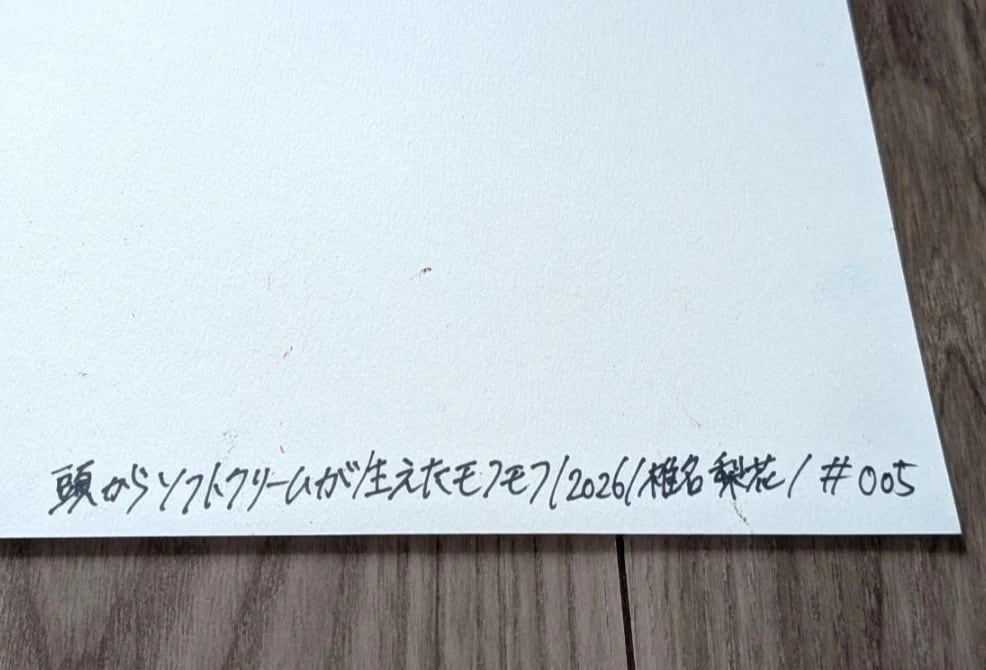 頭からソフトクリームが生えたモフモフ/2026/椎名梨花/#005